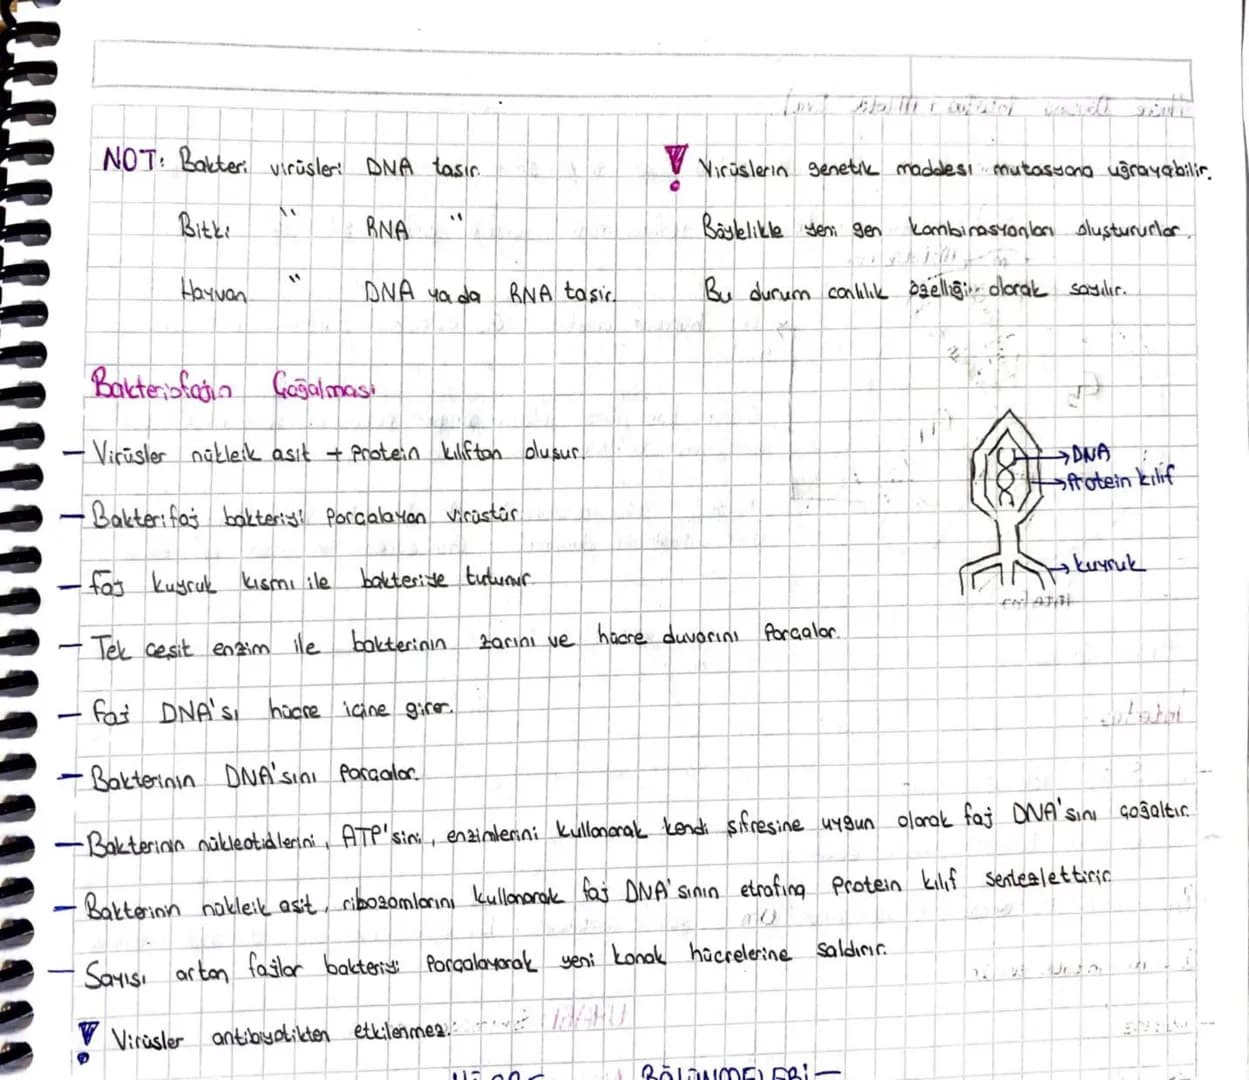 NOT: Bakteri virüsleri DNA taşır.
Bitki " RNA "
Hayvan " DNA ya da RNA taşır.
! Virüslerin genetik maddesi mutasyona uğrayabilir.
Böylelikle yeni gen kombinasyonları oluştururlar.
Bu durum canlılık özelliği olarak sayılır.
Bakteriofajın Çoğalması
— Virüsler nükleik asit + Protein kılıftan oluşur.
— Bakterifaj bakteriyi parçalayan virüstür.
— faj kuyruk kısmı ile bakteriye tutunur.
— Tek çeşit enzim ile bakterinin zarını ve hücre duvarını Parçalar.
— faj DNA'sı hücre içine girer.
— Bakterinin DNA'sını Parçalar.
— Bakterinin nükleotidlerini, ATP'sini, enzimlerini kullanarak kendi şifresine uygun olarak faj DNA'sını çoğaltır.
— Bakterinin nükleik asit, ribozomlarını kullanarak faj DNA'sının etrafına Protein kılıf sentezlettirir.
— Sayısı artan fajlar bakteriyi Parçalayarak yeni konak hücrelerine saldırır.
! Virüsler antibiyotikten etkilenmez.
→DNA
→Protein kılıf
→kuyruk
BÖLÜNMELERİ—